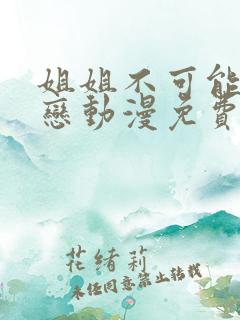 姐姐不可能
戀動漫免費
花緒莉
未經同意禁止转载